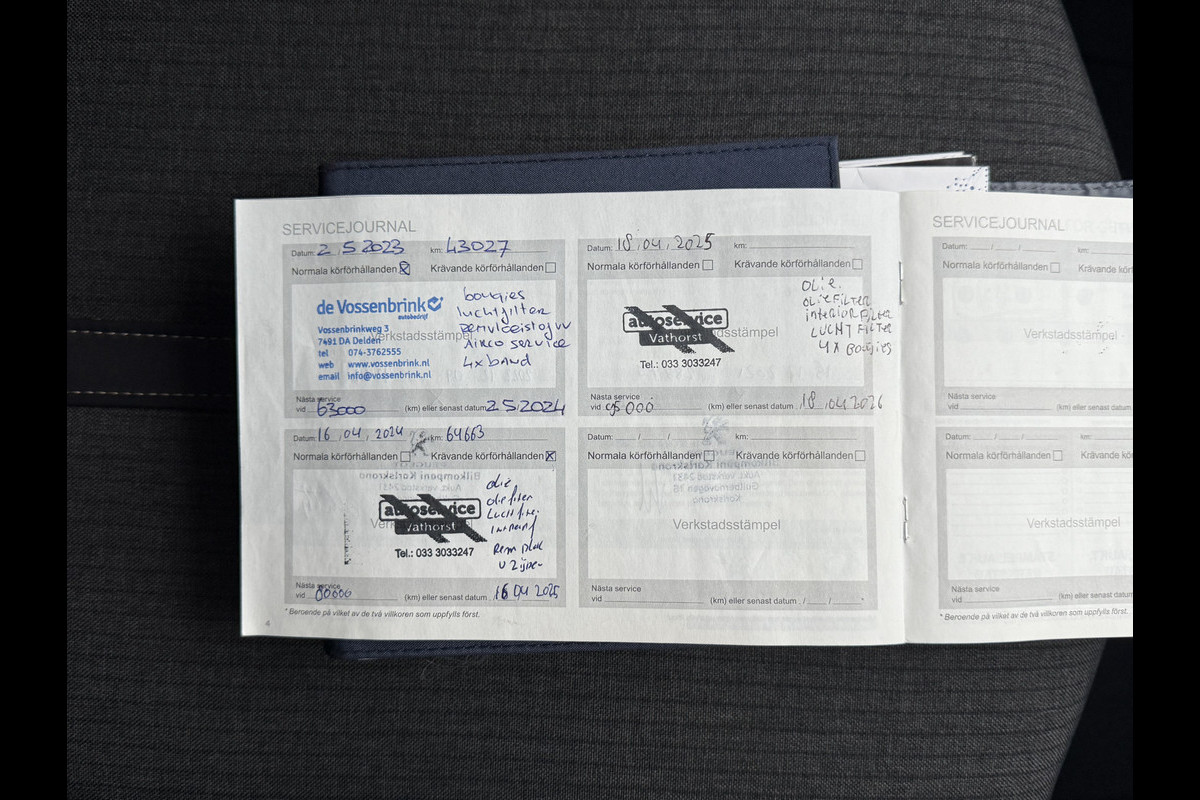 SERVICEJOURNAL
Datum: 2 5 2023 km: 43027
Normala körförhållanden Krävande körförhållanden
de Vossenbrink
autobedrijf
Vossenbrinkweg 3
7491 DA Delden
tel 074-3762555
web www.vossenbrink.nl
email info@vossenbrink.nl
Verkstadsstämpel
bougies
luchtfilter
AIRCO SERVICE
4x band
Nästa service
vid 63000 (km) eller senast datum 2 5 2024
Datum: 16 04, 2024 km: 64663
Normala körförhållanden Krävande körförhållanden
autoservice
Vathorst
Tel.: 033 3033247
olie
oliefilter
Nästa service
vid 80000 (km) eller senast datum 16 04 2025
* Beroende på vilket av de två villkoren som uppfylls först.
4
Datum: 18, 04, 2025 km:
Normala körförhållanden Krävande körförhållanden
autoservice
Vathorst
Tel.: 033 3033247
dsstämpel
OLIE.
OLIEFILTER
INTERIORFILTER
LUCHTFILTER
4X BOUGIES
Nästa service
vid (km) eller senast datum 18 04 2026
Datum: / / km:
Normala körförhållanden Krävande körförhållanden
Bilkompani Karlskrona
Aukt. verkstad 2431
Karlskrona
Verkstadsstämpel
Nästa service
vid (km) eller senast datum / / *
SERVICEJOURNAL
Datum: / / km:
Normala körförhållanden Krävande
Verkstadsstämpel
Nästa service
vid (km) eller senast datum
Datum: / / km:
Normala körförhållanden Krävande kör
Verkstadsstämpel
Nästa service
vid (km) eller senast datum
* Beroende på vilket av de två villkoren som uppfylls först.